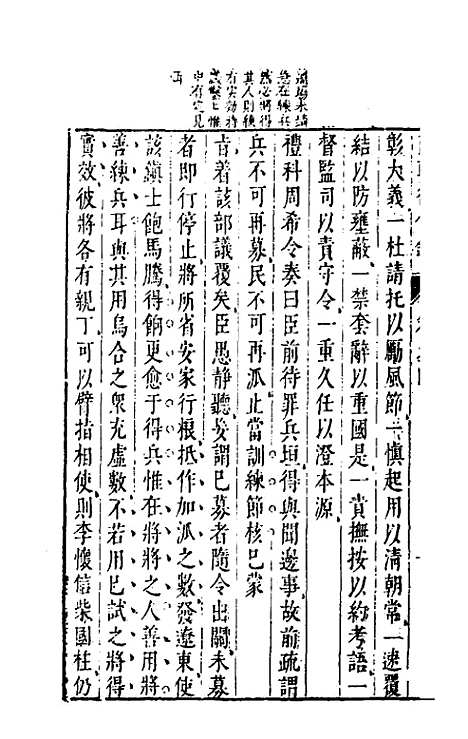 彰大義一杜請托以勵風節一慎起用以清朝常一速覆
結以防壅蔽一禁套辭以重國是一責撫按以約考語一
督監司以責守令一重久任以澄本源
禮科周希令奏曰臣前待罪兵垣得與聞邊事故前疏謂
兵不可再募民不可再派止當訓練節核已蒙
旨着該部議覆矣臣愚靜聽妄謂已募者隨令出關未募
者即行停止將所省安家行糧抵作加派之數發遼東使
該鎮士飽馬騰得餉更愈于得兵惟在將將之人善用將
善練兵耳與其用烏合之衆充虛數不若用已試之將得
實效彼將各有親丁可以臂指相使則李懷信柴國柱仍
急在練兵
然必將得
其人則練
有實効待
中有定見
耳